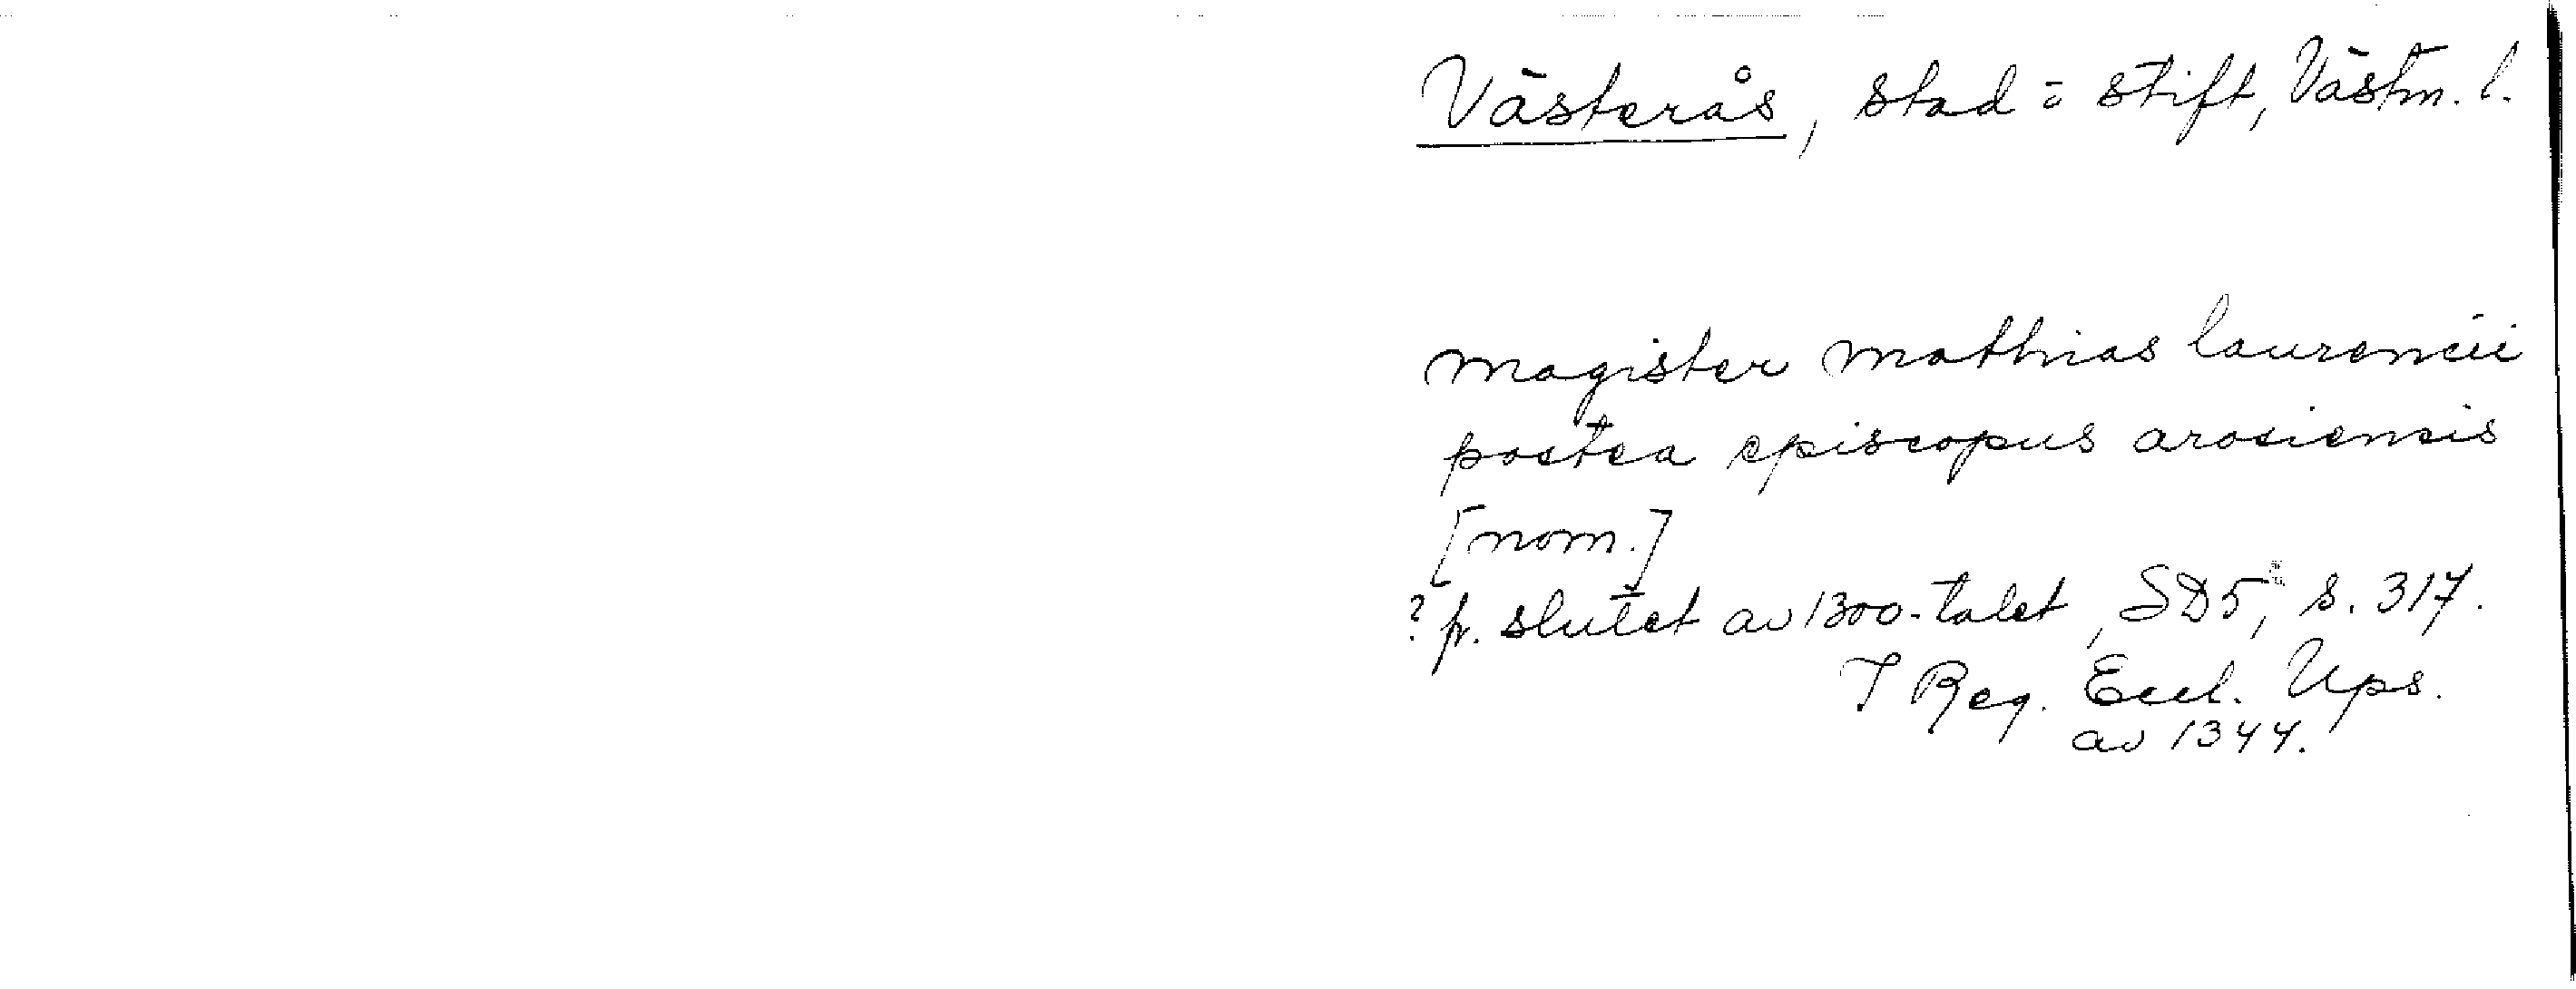 Västerås, stad o stift, Västm. l.
magister mathias laurencii
postea episcopus arosiensis
[nom.]
? fr. slutet av 1300-talet, SD5, s. 317.
I Reg. Eccl. Ups.
av 1344.